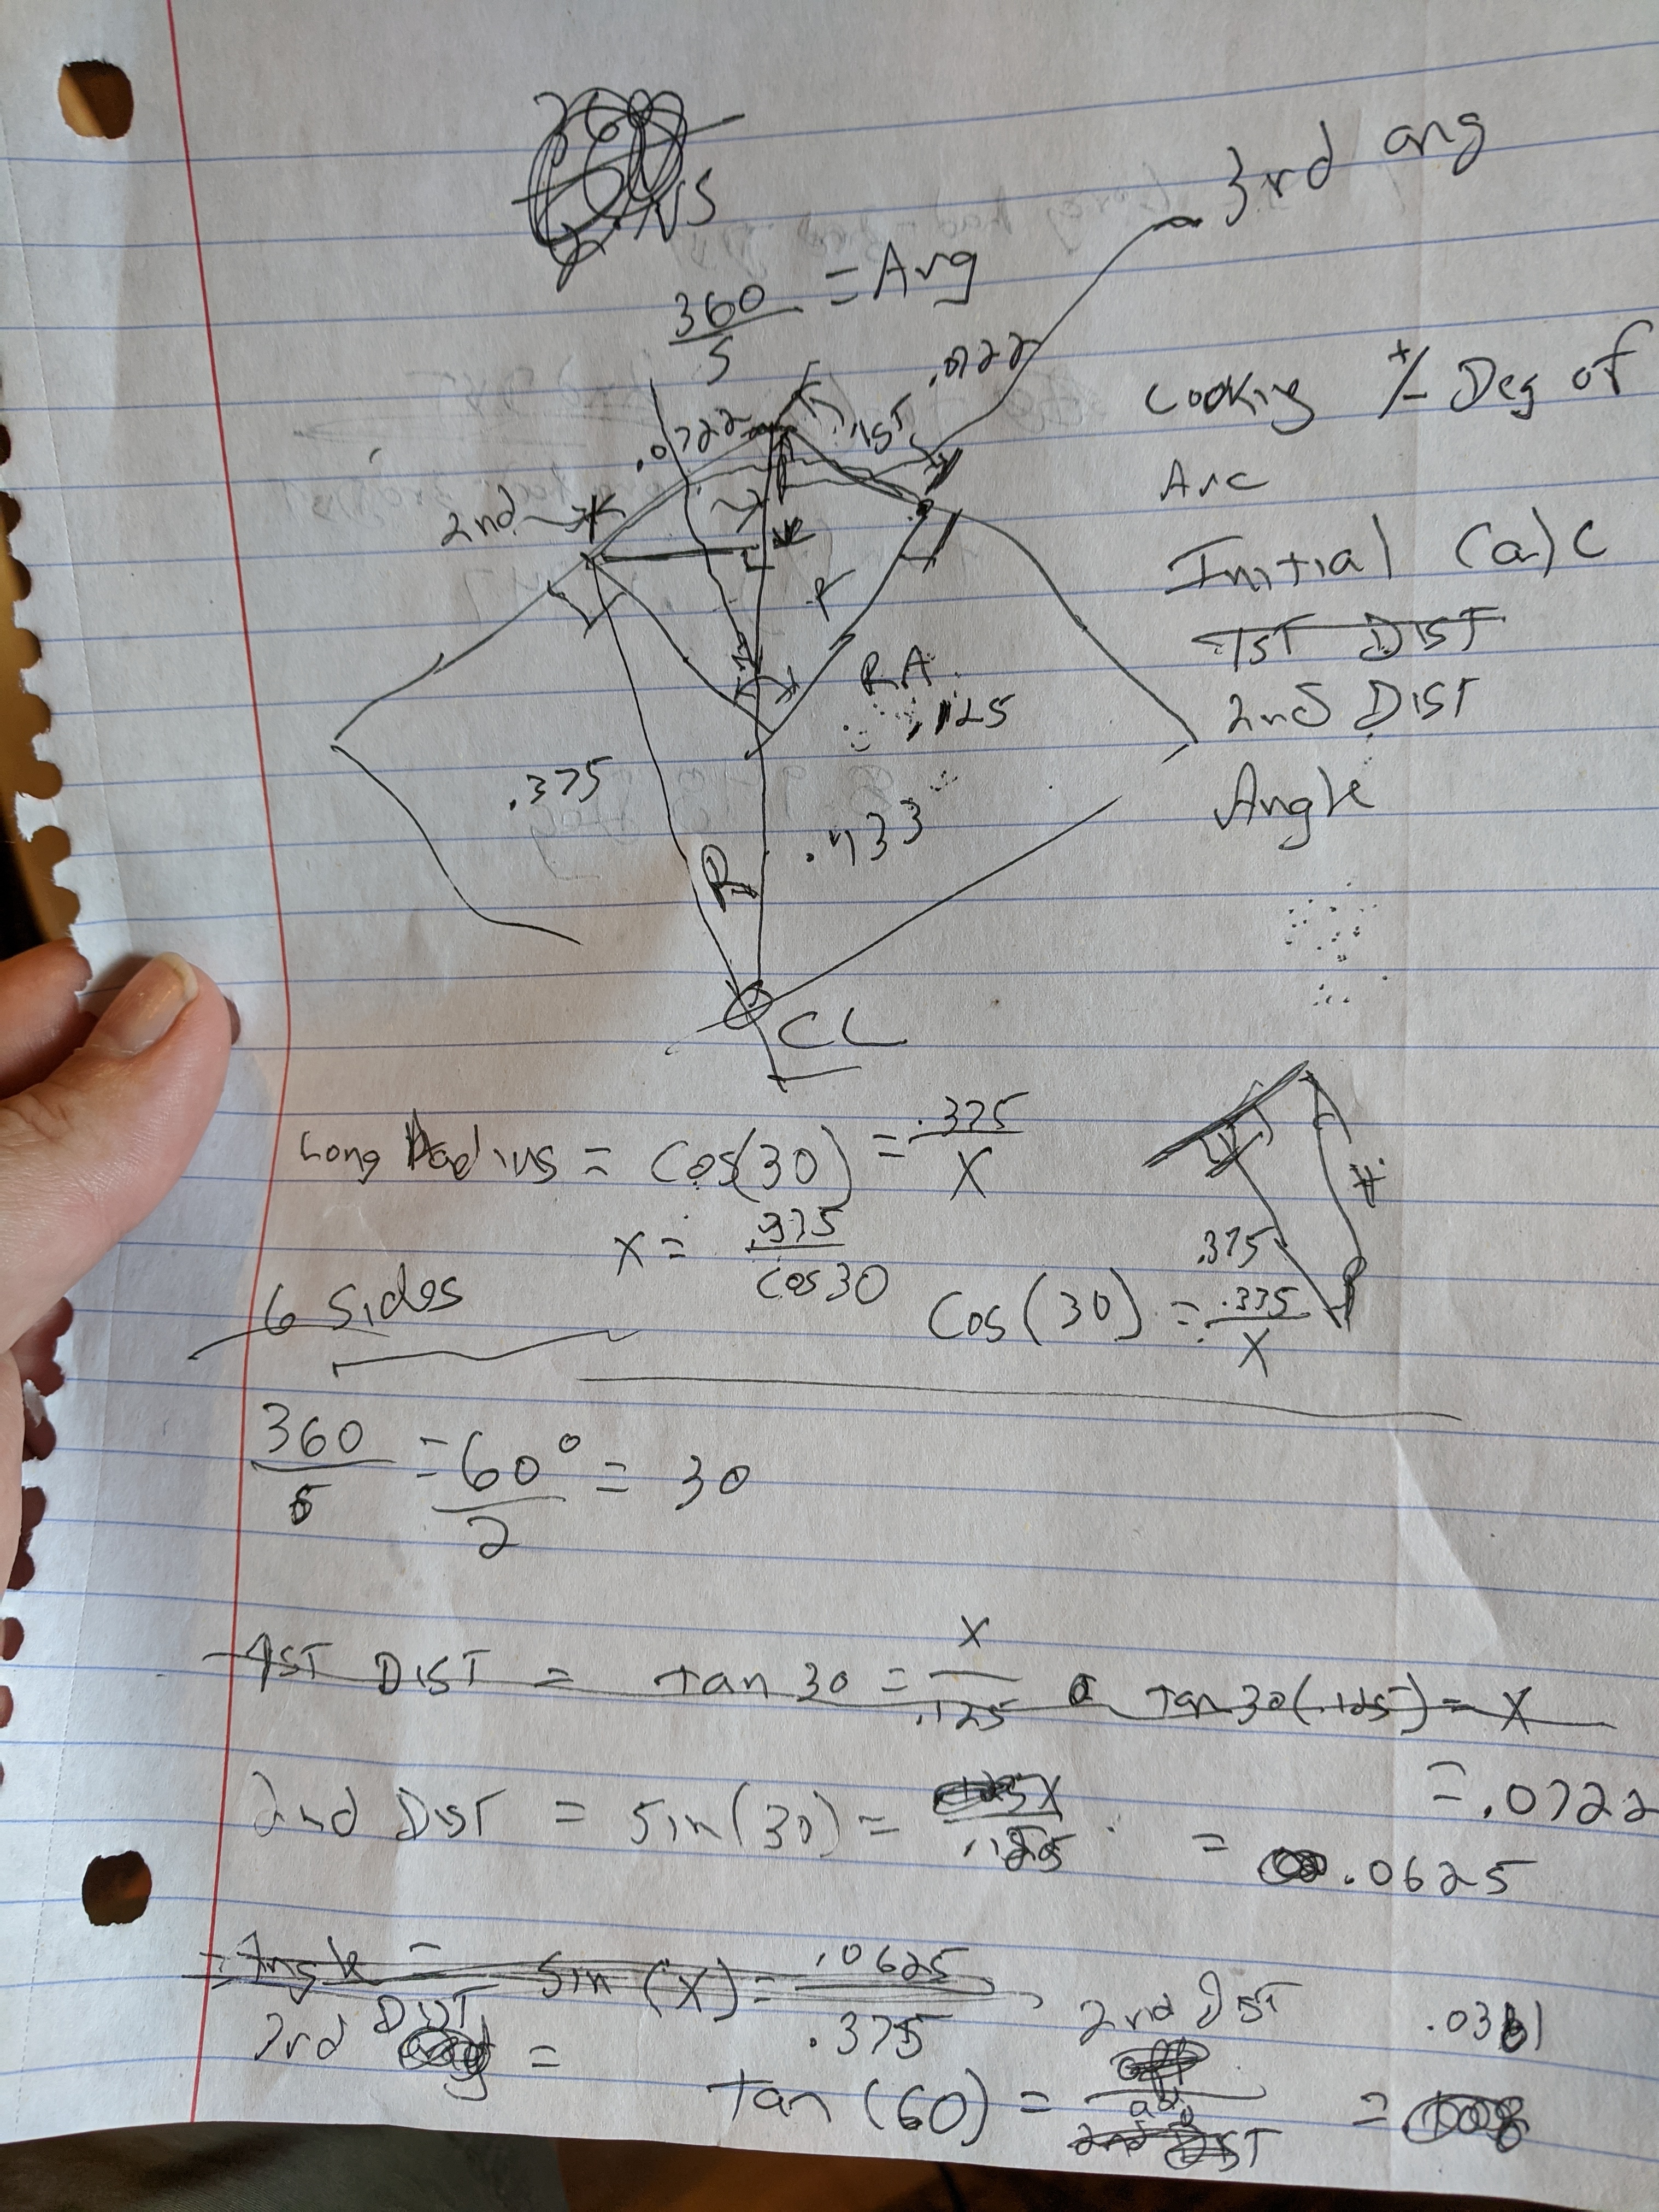 NS
3rd ang
360/5 = Ang
.0722
.0722
1ST
2nd
r
RA
.125
.375
.433
R
CL
Looking +/- Deg of
Arc
Initial Calc
1ST DIST
2nd DIST
Angle
Long Radius = Cos(30) = .375/X
X = .375/Cos30
.375
6 Sides
Cos(30) = .375/X
360/6 = 60°/2 = 30
1ST DIST = tan 30 = X/.125 Tan30(.125) = X
= .0722
2nd DIST = Sin(30) = X/.125 = .0625
Angle = Sin(X) = .0625/.375
3rd DIST = tan(60) = 2nd DIST/adj = .0361
2nd DIST